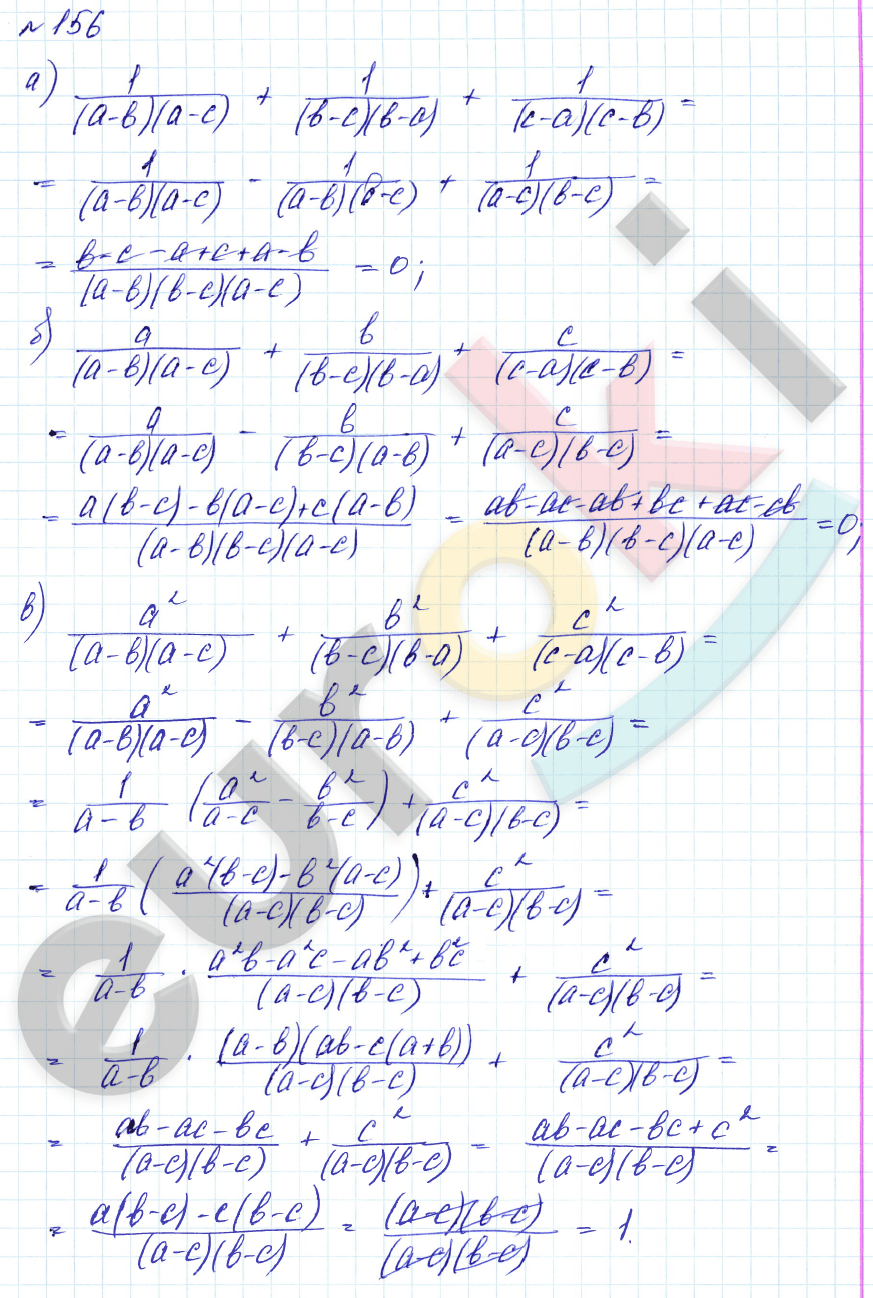 №156
а) 1/((a-b)(a-c)) + 1/((b-c)(b-a)) + 1/((c-a)(c-b)) =
= 1/((a-b)(a-c)) - 1/((a-b)(b-c)) + 1/((a-c)(b-c)) =
= (b-c-a+c+a-b)/((a-b)(b-c)(a-c)) = 0;
б) a/((a-b)(a-c)) + b/((b-c)(b-a)) + c/((c-a)(c-b)) =
= a/((a-b)(a-c)) - b/((b-c)(a-b)) + c/((a-c)(b-c)) =
= (a(b-c)-b(a-c)+c(a-b))/((a-b)(b-c)(a-c)) = (ab-ac-ab+bc+ac-cb)/((a-b)(b-c)(a-c)) = 0;
в) a²/((a-b)(a-c)) + b²/((b-c)(b-a)) + c²/((c-a)(c-b)) =
= a²/((a-b)(a-c)) - b²/((b-c)(a-b)) + c²/((a-c)(b-c)) =
= 1/(a-b) (a²/(a-c) - b²/(b-c)) + c²/((a-c)(b-c)) =
= 1/(a-b) ((a²(b-c)-b²(a-c))/((a-c)(b-c))) + c²/((a-c)(b-c)) =
= 1/(a-b) · (a²b-a²c-ab²+b²c)/((a-c)(b-c)) + c²/((a-c)(b-c)) =
= 1/(a-b) · ((a-b)(ab-c(a+b)))/((a-c)(b-c)) + c²/((a-c)(b-c)) =
= (ab-ac-bc)/((a-c)(b-c)) + c²/((a-c)(b-c)) = (ab-ac-bc+c²)/((a-c)(b-c)) =
= (a(b-c)-c(b-c))/((a-c)(b-c)) = ((a-c)(b-c))/((a-c)(b-c)) = 1.
euroki